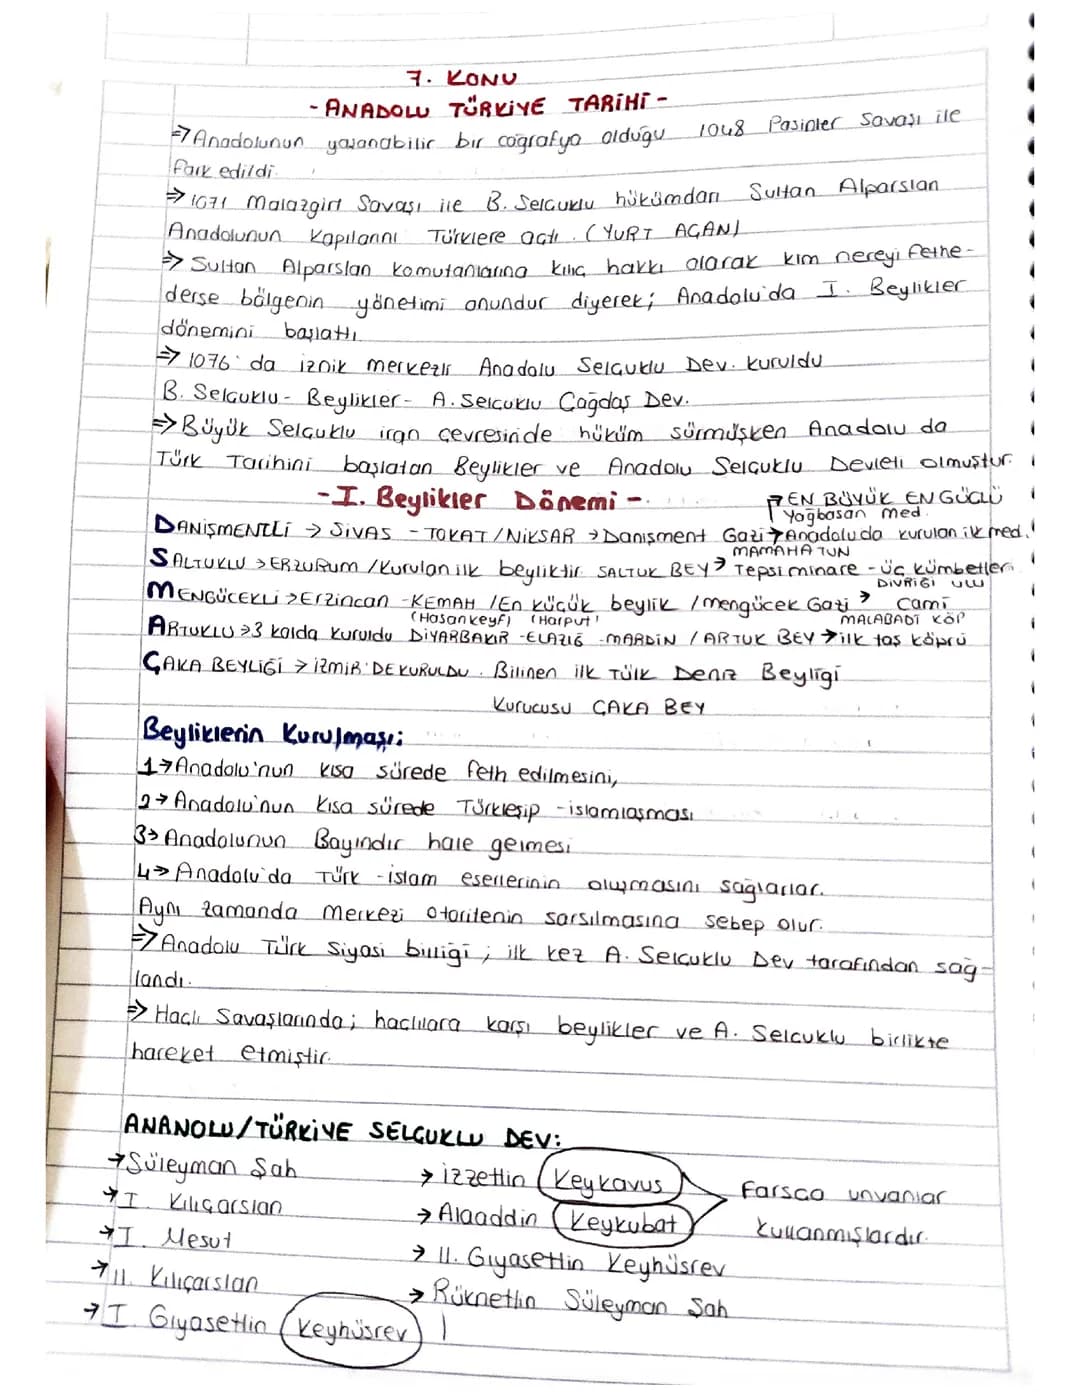 7. KONU
- ANADOLU TÜRKİYE TARİHİ -
⇒ Anadolunun yaşanabilir bir coğrafya olduğu 1048 Pasinler Savaşı ile
fark edildi.
⇒ 1071 Malazgirt Savaşı ile B. Selçuklu hükümdarı Sultan Alparslan
Anadolunun Kapılarını Türklere açtı. (YURT AÇAN)
⇒ Sultan Alparslan komutanlarına kılıç hakkı olarak kim nereyi fethe-
derse bölgenin yönetimi onundur diyerek; Anadolu'da I. Beylikler
dönemini başlattı.
⇒ 1076' da iznik merkezli Anadolu Selçuklu Dev. kuruldu
B. Selçuklu - Beylikler - A. Selçuklu Çağdaş Dev.
⇒ Büyük Selçuklu iran çevresinde hüküm sürmüşken Anadolu da
Türk Tarihini başlatan Beylikler ve Anadolu Selçuklu Devleti olmuştur.
- I. Beylikler Dönemi -
→ EN BÜYÜK EN GÜÇLÜ
Yağbasan med.
DANİŞMENTLİ → SİVAS - TOKAT / NİKSAR → Danışment Gazi → Anadoluda kurulan ilk med.
MAMAHATUN
SALTUKLU → ERZURUM / Kurulan ilk beyliktir. SALTUK BEY → Tepsi minare - üç kümbetler
DİVRİĞİ ULU
MENGÜCEKLİ → Erzincan - KEMAH / En küçük beylik / mengücek Gazi → Cami
(Hasankeyf) (Harput) MALABADİ KÖP
ARTUKLU → 3 kolda kuruldu DİYARBAKIR - ELAZIĞ - MARDİN / ARTUK BEY → ilk taş köprü
ÇAKA BEYLİĞİ → İZMİR' DE KURULDU. Bilinen ilk Türk Deniz Beyliği
Kurucusu ÇAKA BEY
Beyliklerin Kurulması;
1→ Anadolu'nun kısa sürede feth edilmesini,
2→ Anadolu'nun kısa sürede Türkleşip - islamlaşması
3→ Anadolunun Bayındır hale gelmesi
4→ Anadolu'da Türk - islam eserlerinin oluşmasını sağlarlar.
Aynı zamanda merkezi otoritenin sarsılmasına sebep olur.
⇒ Anadolu Türk Siyasi birliği; ilk kez A. Selçuklu Dev tarafından sağ-
landı.
⇒ Haçlı Savaşlarında; haçlılara karşı beylikler ve A. Selçuklu birlikte
hareket etmiştir.
ANANOLU/TÜRKİYE SELÇUKLU DEV:
→ Süleyman Şah
→ I. Kılıçarslan
→ I. Mesut
→ II. Kılıçarslan
→ I. Gıyasettin Keyhüsrev
→ İzzettin Keykavus
→ Alaaddin Keykubat
→ II. Gıyasettin Keyhüsrev
→ Rüknettin Süleyman Şah
Farsça unvanlar
kullanmışlardır.